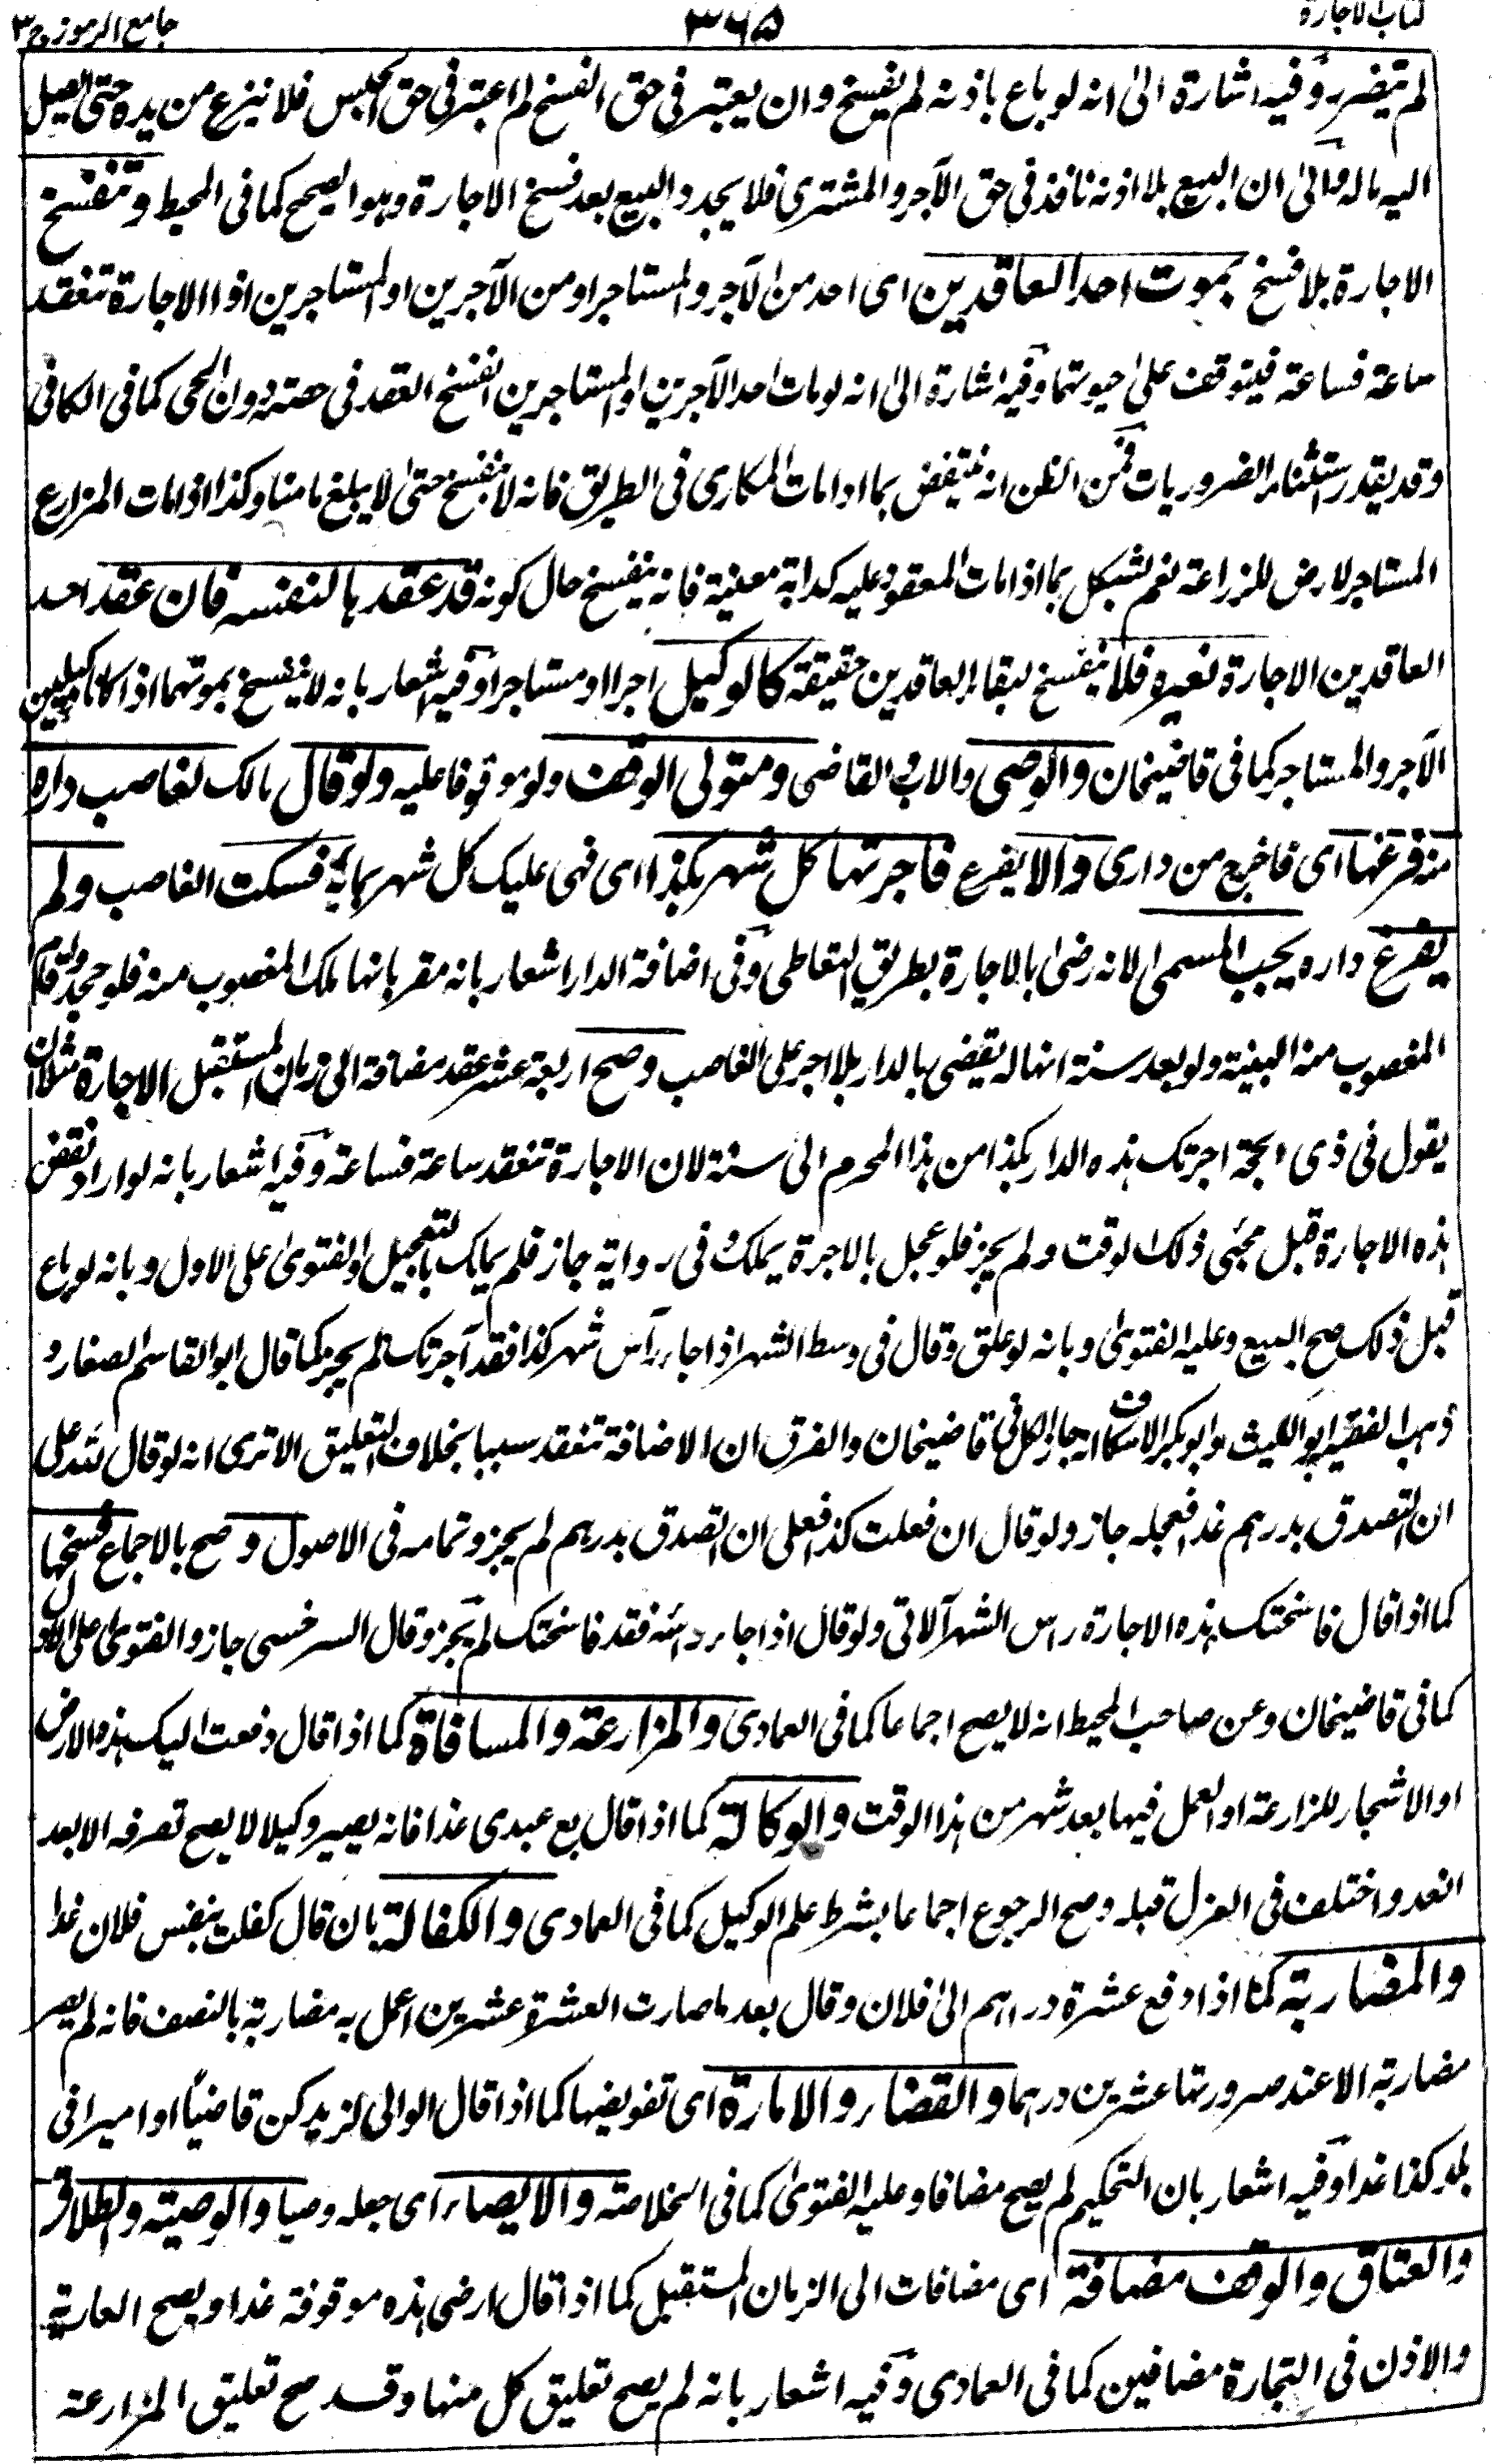 كتاب الاجارة ٣٦٥ جامع الرموز ج٣
لم يتضرر وفيه اشارة الى انه لو باع باذنه لم يفسخ وان يعتبر فى حق الفسخ لم اعتبر فى حق الحبس فلا ينزع من يده حتى يصل
اليه ماله والى ان البيع بلا اذنه نافذ فى حق الآجر والمشترى فلا يجدد البيع بعد فسخ الاجارة وهو الصحيح كما فى المحيط وتنفسخ
الاجارة بلا فسخ بموت احد العاقدين اى احد من الآجر والمستاجر او من الآجرين او المستاجرين اذ الاجارة تنعقد
ساعة فساعة فيتوقف على حيوتهما وفيه اشارة الى انه لو مات احد الآجرين او المستاجرين انفسخ العقد فى حصته دون الحى كما فى الكافى
وقد يقدر استثناء الضروريات فمن الظن انه ينتقض بما اذا مات المكارى فى الطريق فانه لا ينفسخ حتى لا يبلغ مامنا وكذا اذا مات المزارع
المستاجر لارض للزراعة نعم يشكل بما اذا مات المعقود عليه كدابة معينة فانه ينفسخ حال كونه قد عقدها لنفسه فان عقد احد
العاقدين الاجارة لغيره فلا ينفسخ لبقاء العاقدين حقيقة كالوكيل اجرا او مستاجرا وفيه اشعار بانه لا ينفسخ بموتهما اذا كانا وكيلين
الآجر والمستاجر كما فى قاضيخان والوصى والاب والقاضى ومتولى الوقف ولو موقوفا عليه ولو قال مالك لغاصب داره
منه فرغها اى فاخرج من دارى والا يفرغ فاجرتها كل شهر بكذا اى فهى عليك كل شهر بمائة فسكت الغاصب ولم
يفرغ داره يجب المسمى لانه رضى بالاجارة بطريق التعاطى وفى اضافة الدار اشعار بانه مقر بانها ملك المغصوب منه فلو جحد واقام
المغصوب منه البينة ولو بعد سنة انها له يقضى بالدار بلا اجر على الغاصب وصح اربعة عشر عقد مضافة الى زمان المستقبل الاجارة مثلا ان
يقول فى ذى الحجة اجرتك هذه الدار بكذا من هذا المحرم الى سنة لان الاجارة تنعقد ساعة فساعة وفيه اشعار بانه لو اراد نقض
هذه الاجارة قبل مجئى ذلك الوقت ولم يجز فلو عجل بالاجرة يملك وفى رواية جاز فلم يملك بالتعجيل والفتوى على الاول وبانه لو باع
قبل ذلك صح البيع وعليه الفتوى وبانه لو علق وقال فى وسط الشهر اذا جاء رأس شهر كذا فقد آجرتك لم يجز كما قال ابو القاسم الصفار و
ذهب الفقيه ابو الليث وابو بكر الاسكاف انه جاز الكل فى قاضيخان والفرق ان الاضافة تنعقد سببا بخلاف التعليق الا ترى انه لو قال لله على
ان اتصدق بدرهم غدا فعجله جاز ولو قال ان فعلت كذا فعلى ان اتصدق بدرهم لم يجز وتمامه فى الاصول وصح بالاجماع فسخها
كما اذا قال فاسختك هذه الاجارة راس الشهر الآتى ولو قال اذا جاء راسه فقد فاسختك لم يجز وقال السرخسى جاز والفتوى على الاول
كما فى قاضيخان وعن صاحب المحيط انه لا يصح اجماعا كما فى العمادى والمزارعة والمساقاة كما اذا قال دفعت اليك هذه الارض
او الاشجار للزراعة او العمل فيها بعد شهر من هذا الوقت والوكالة كما اذا قال بع عبدى غدا فانه يصير وكيلا لا يصح تصرفه الا بعد
الغد واختلف فى العزل قبله وصح الرجوع اجماعا بشرط علم الوكيل كما فى العمادى والكفالة بان قال كفلت بنفس فلان غدا
والمضاربة كما اذا دفع عشرة دراهم الى فلان وقال بعد ما صارت العشرة عشرين اعمل به مضاربة بالنصف فانه لم يصر
مضاربة الا عند صرورتها عشرين درهما والقضاء والامارة اى تفويضها كما اذا قال الوالى لزيد كن قاضيا او اميرا فى
بلد كذا غدا وفيه اشعار بان التحكيم لم يصح مضافا وعليه الفتوى كما فى الخلاصة والايصاء اى جعله وصيا والوصية والطلاق
والعتاق والوقف مضافة اى مضافات الى الزمان المستقبل كما اذا قال ارضى هذه موقوفة غدا ويصح العارية
والاذن فى التجارة مضافين كما فى العمادى وفيه اشعار بانه لم يصح تعليق كل منها وقد صح تعليق المزارعة